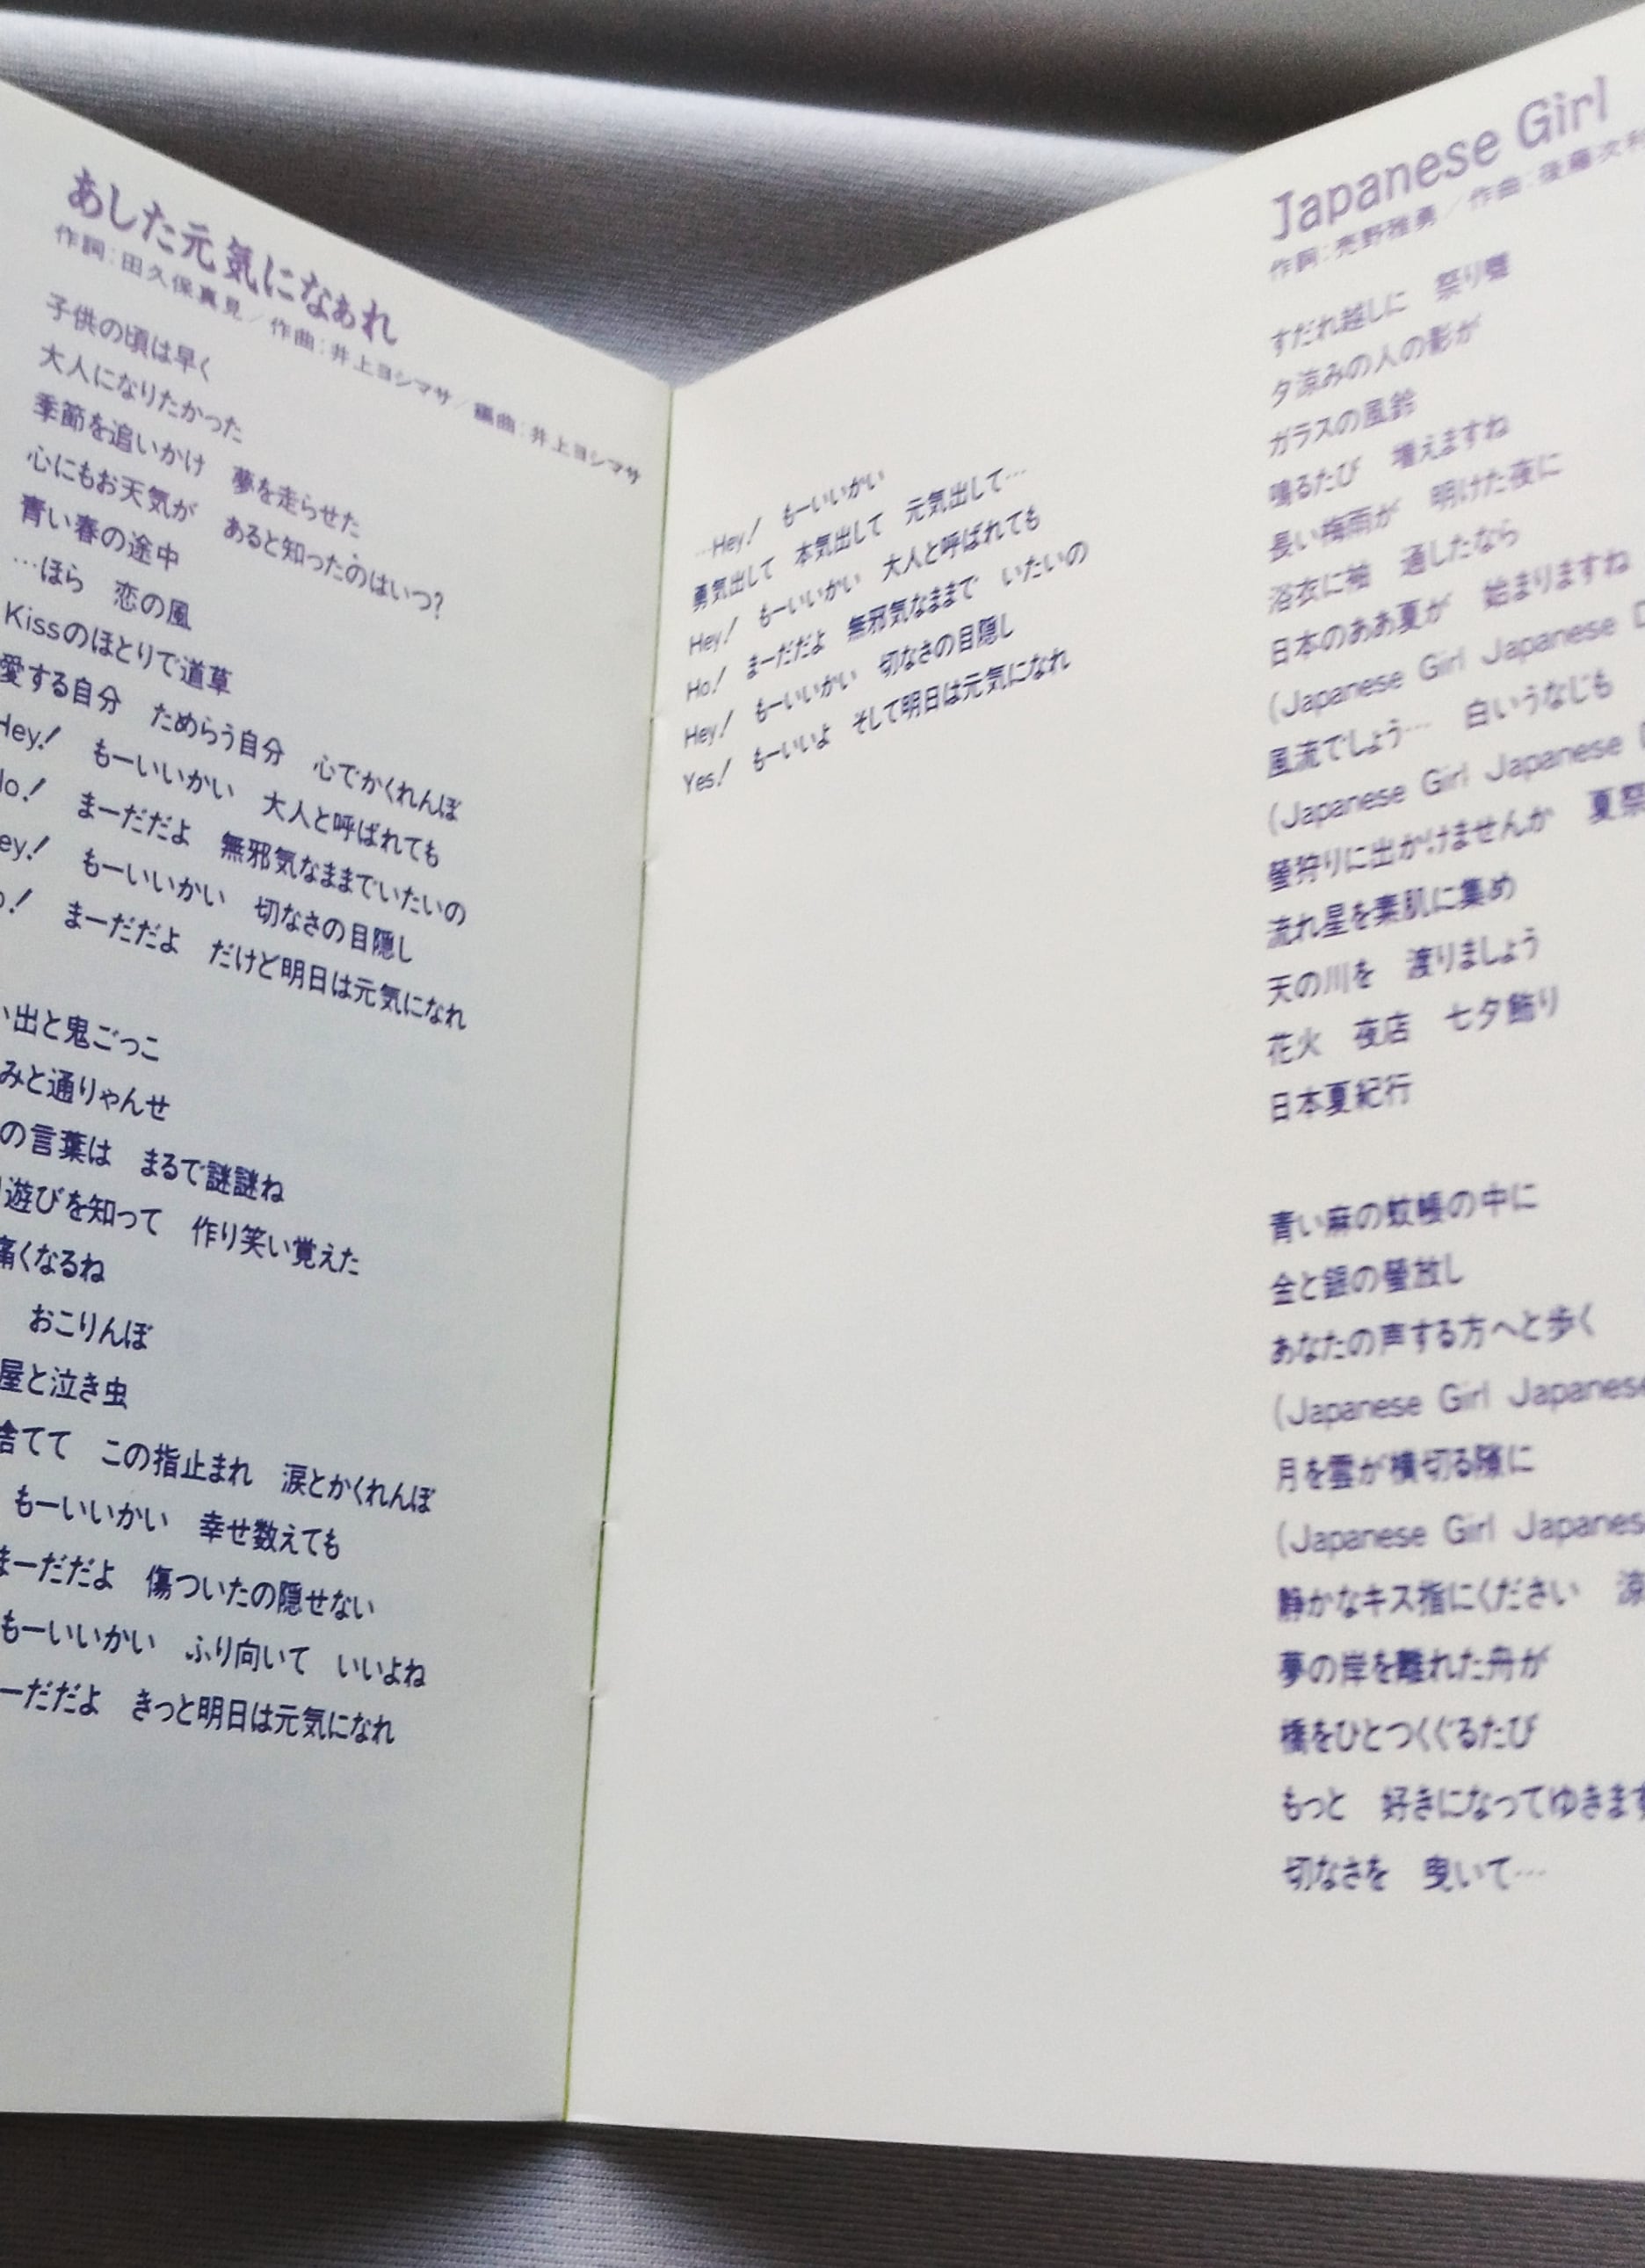 あした元気になぁれ
作詞:田久保真見/作曲:井上ヨシマサ/編曲:井上ヨシマサ
子供の頃は早く
大人になりたかった
季節を追いかけ 夢を走らせた
心にもお天気が あると知ったのはいつ?
青い春の途中
…ほら 恋の風
Kissのほとりで道草
愛する自分 ためらう自分 心でかくれんぼ
Hey! もーいいかい 大人と呼ばれても
まーだだよ 無邪気なままでいたいの
もーいいかい 切なさの目隠し
まーだだよ だけど明日は元気になれ
出と鬼ごっこ
みと通りゃんせ
の言葉は まるで謎謎ね
遊びを知って 作り笑い覚えた
痛くなるね
おこりんぼ
屋と泣き虫
捨てて この指止まれ 涙とかくれんぼ
もーいいかい 幸せ数えても
まーだだよ 傷ついたの隠せない
もーいいかい ふり向いて いいよね
ーだだよ きっと明日は元気になれ
…Hey! もーいいかい
勇気出して 本気出して 元気出して…
Hey! もーいいかい 大人と呼ばれても
Ho! まーだだよ 無邪気なままで いたいの
Hey! もーいいかい 切なさの目隠し
Yes! もーいいよ そして明日は元気になれ
Japanese Girl
作詞:売野雅勇/作曲:後藤次利
すだれ越しに 祭り囃
夕涼みの人の影が
ガラスの風鈴
鳴るたび 増えますね
長い梅雨が 明けた夜に
浴衣に袖 通したなら
日本のああ夏が 始まりますね
(Japanese Girl Japanese
風流でしょう… 白いうなじも
(Japanese Girl Japanese
螢狩りに出かけませんか 夏祭
流れ星を素肌に集め
天の川を 渡りましょう
花火 夜店 七夕飾り
日本夏紀行
青い麻の蚊帳の中に
金と銀の螢放し
あなたの声する方へと歩く
(Japanese Girl Japanese
月を雲が横切る隙に
(Japanese Girl Japanese
静かなキス指にください 涼
夢の岸を離れた舟が
橋をひとつくぐるたび
もっと 好きになってゆきます
切なさを 曳いて…